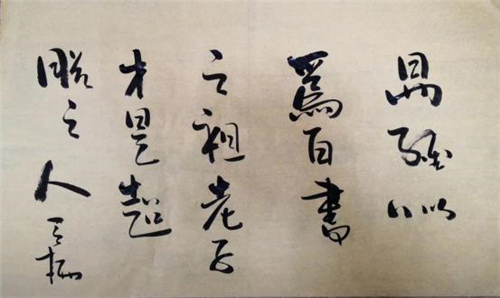 易經以
為百書
之祖老子
才是超
脫之人